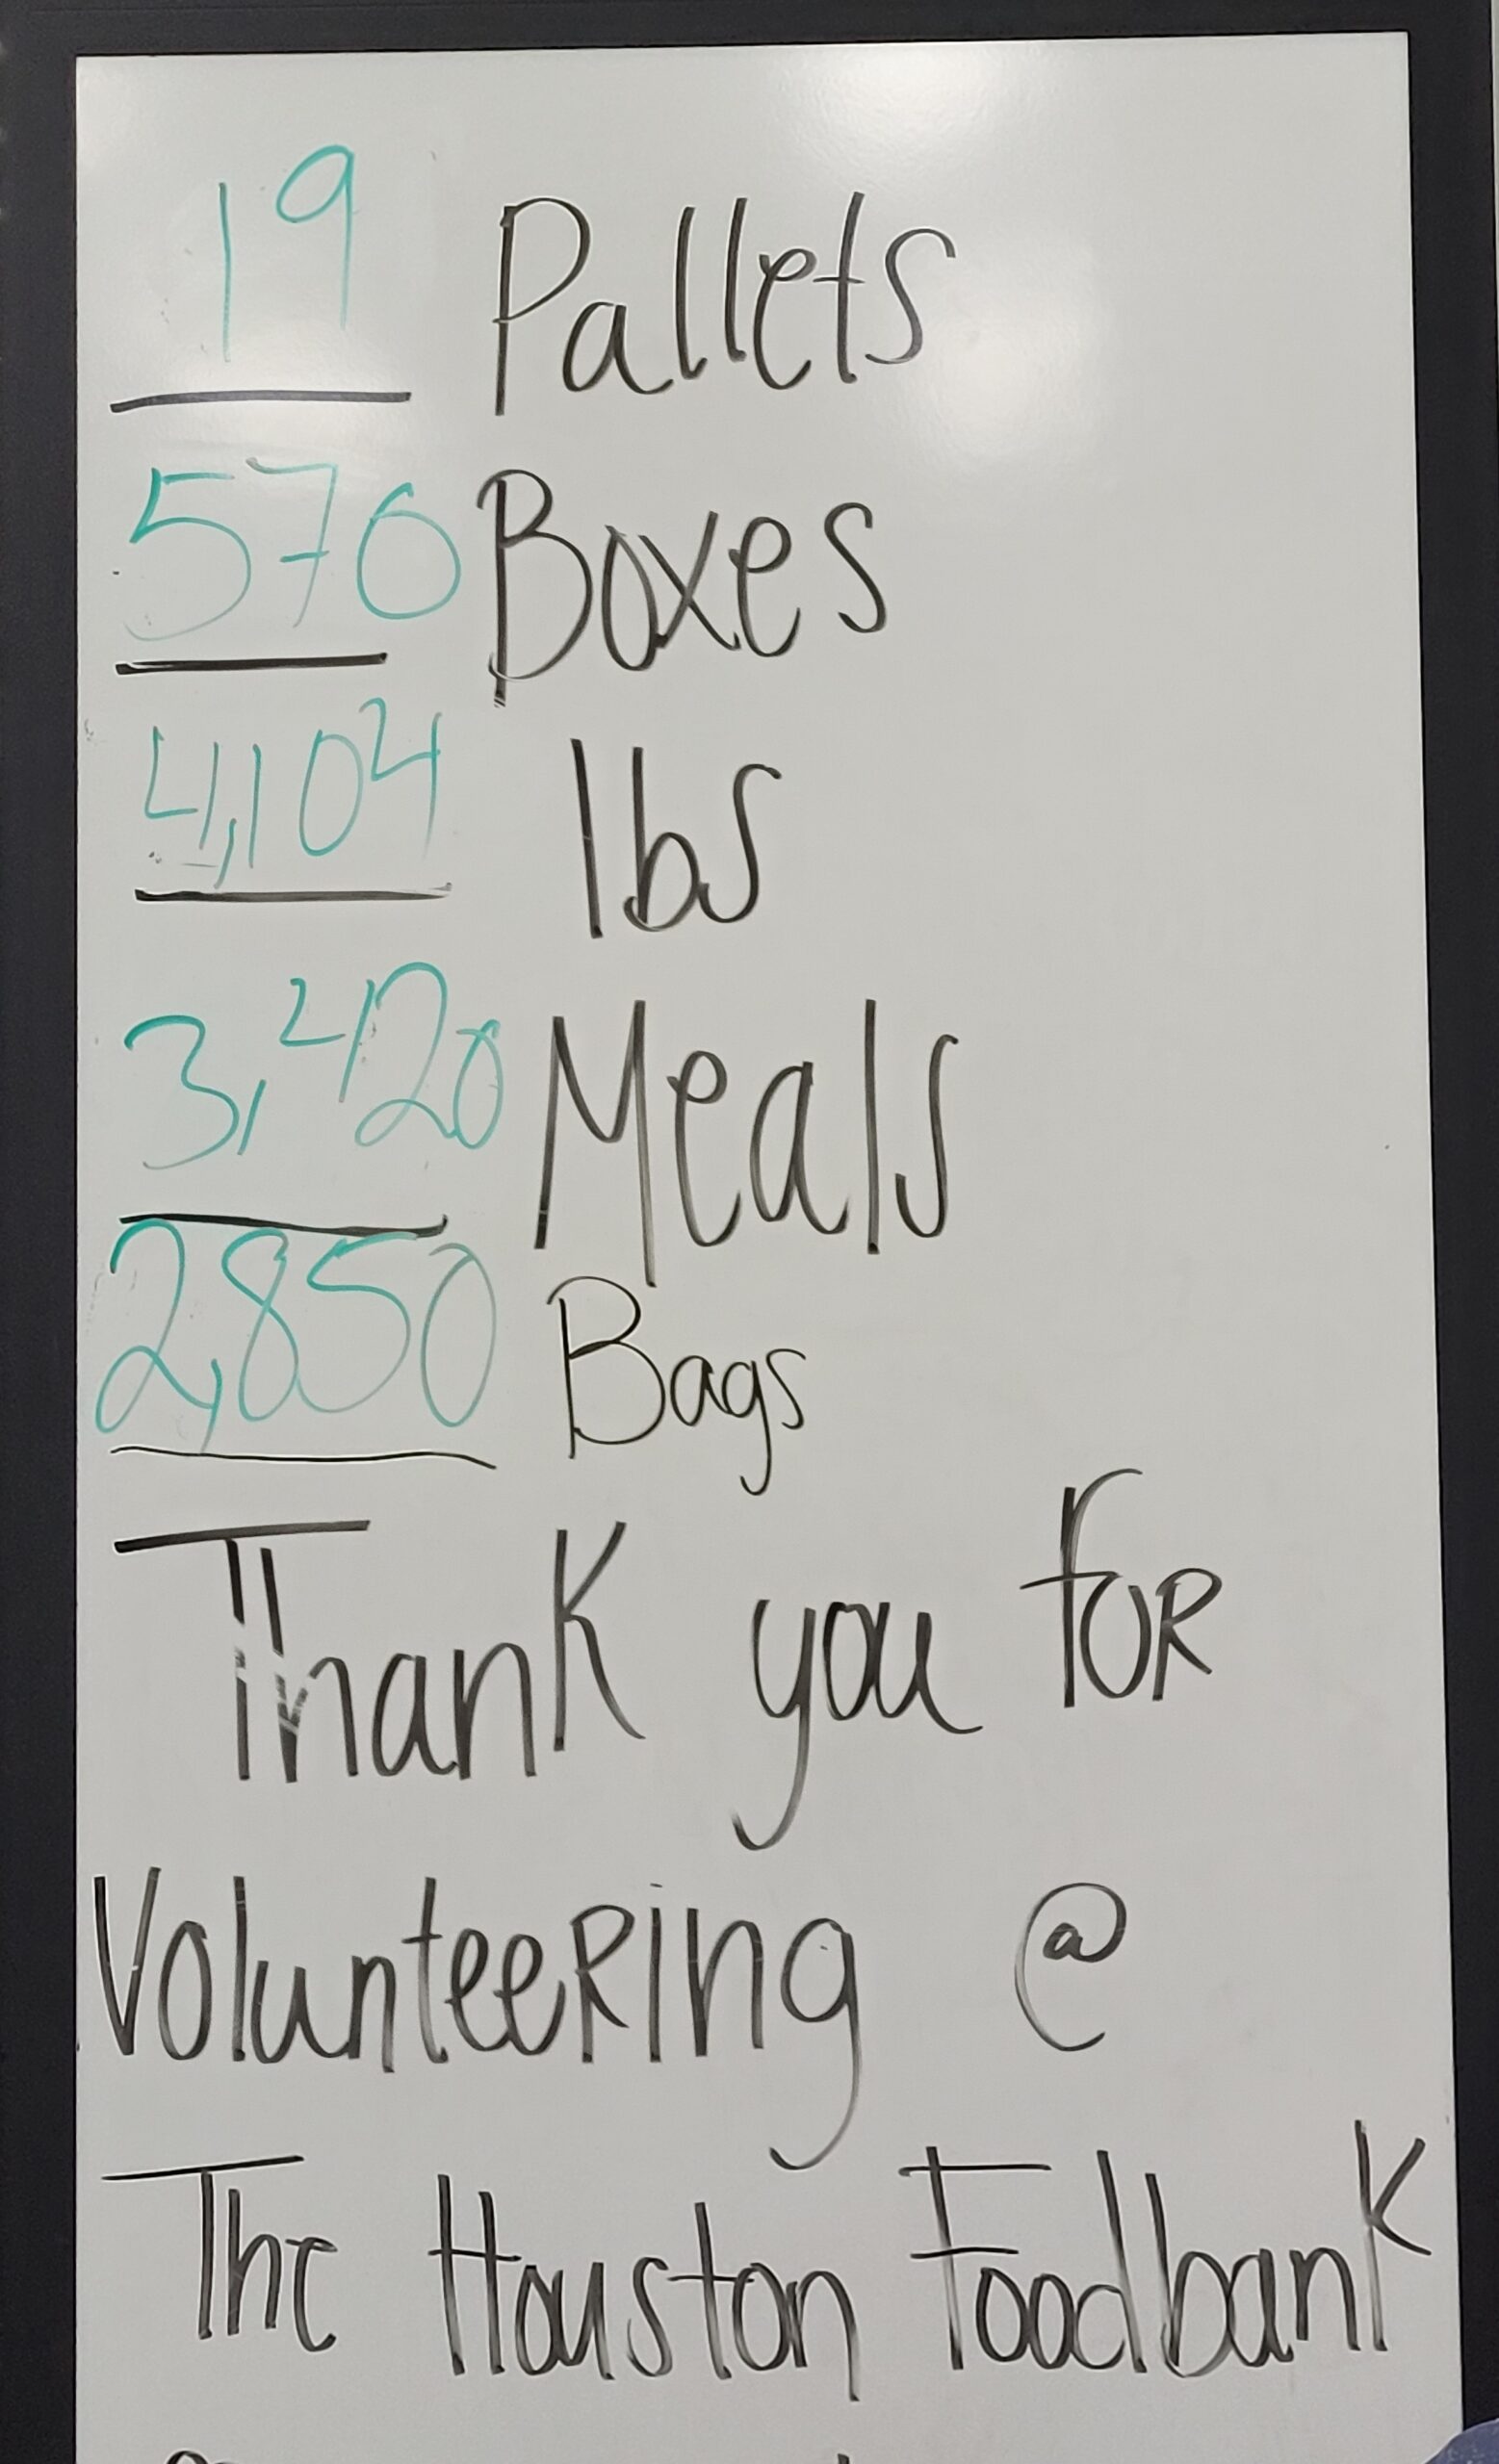 19 Pallets
570 Boxes
4,104 lbs
3,420 Meals
2,850 Bags
Thank you for
Volunteering @
The Houston Foodbank